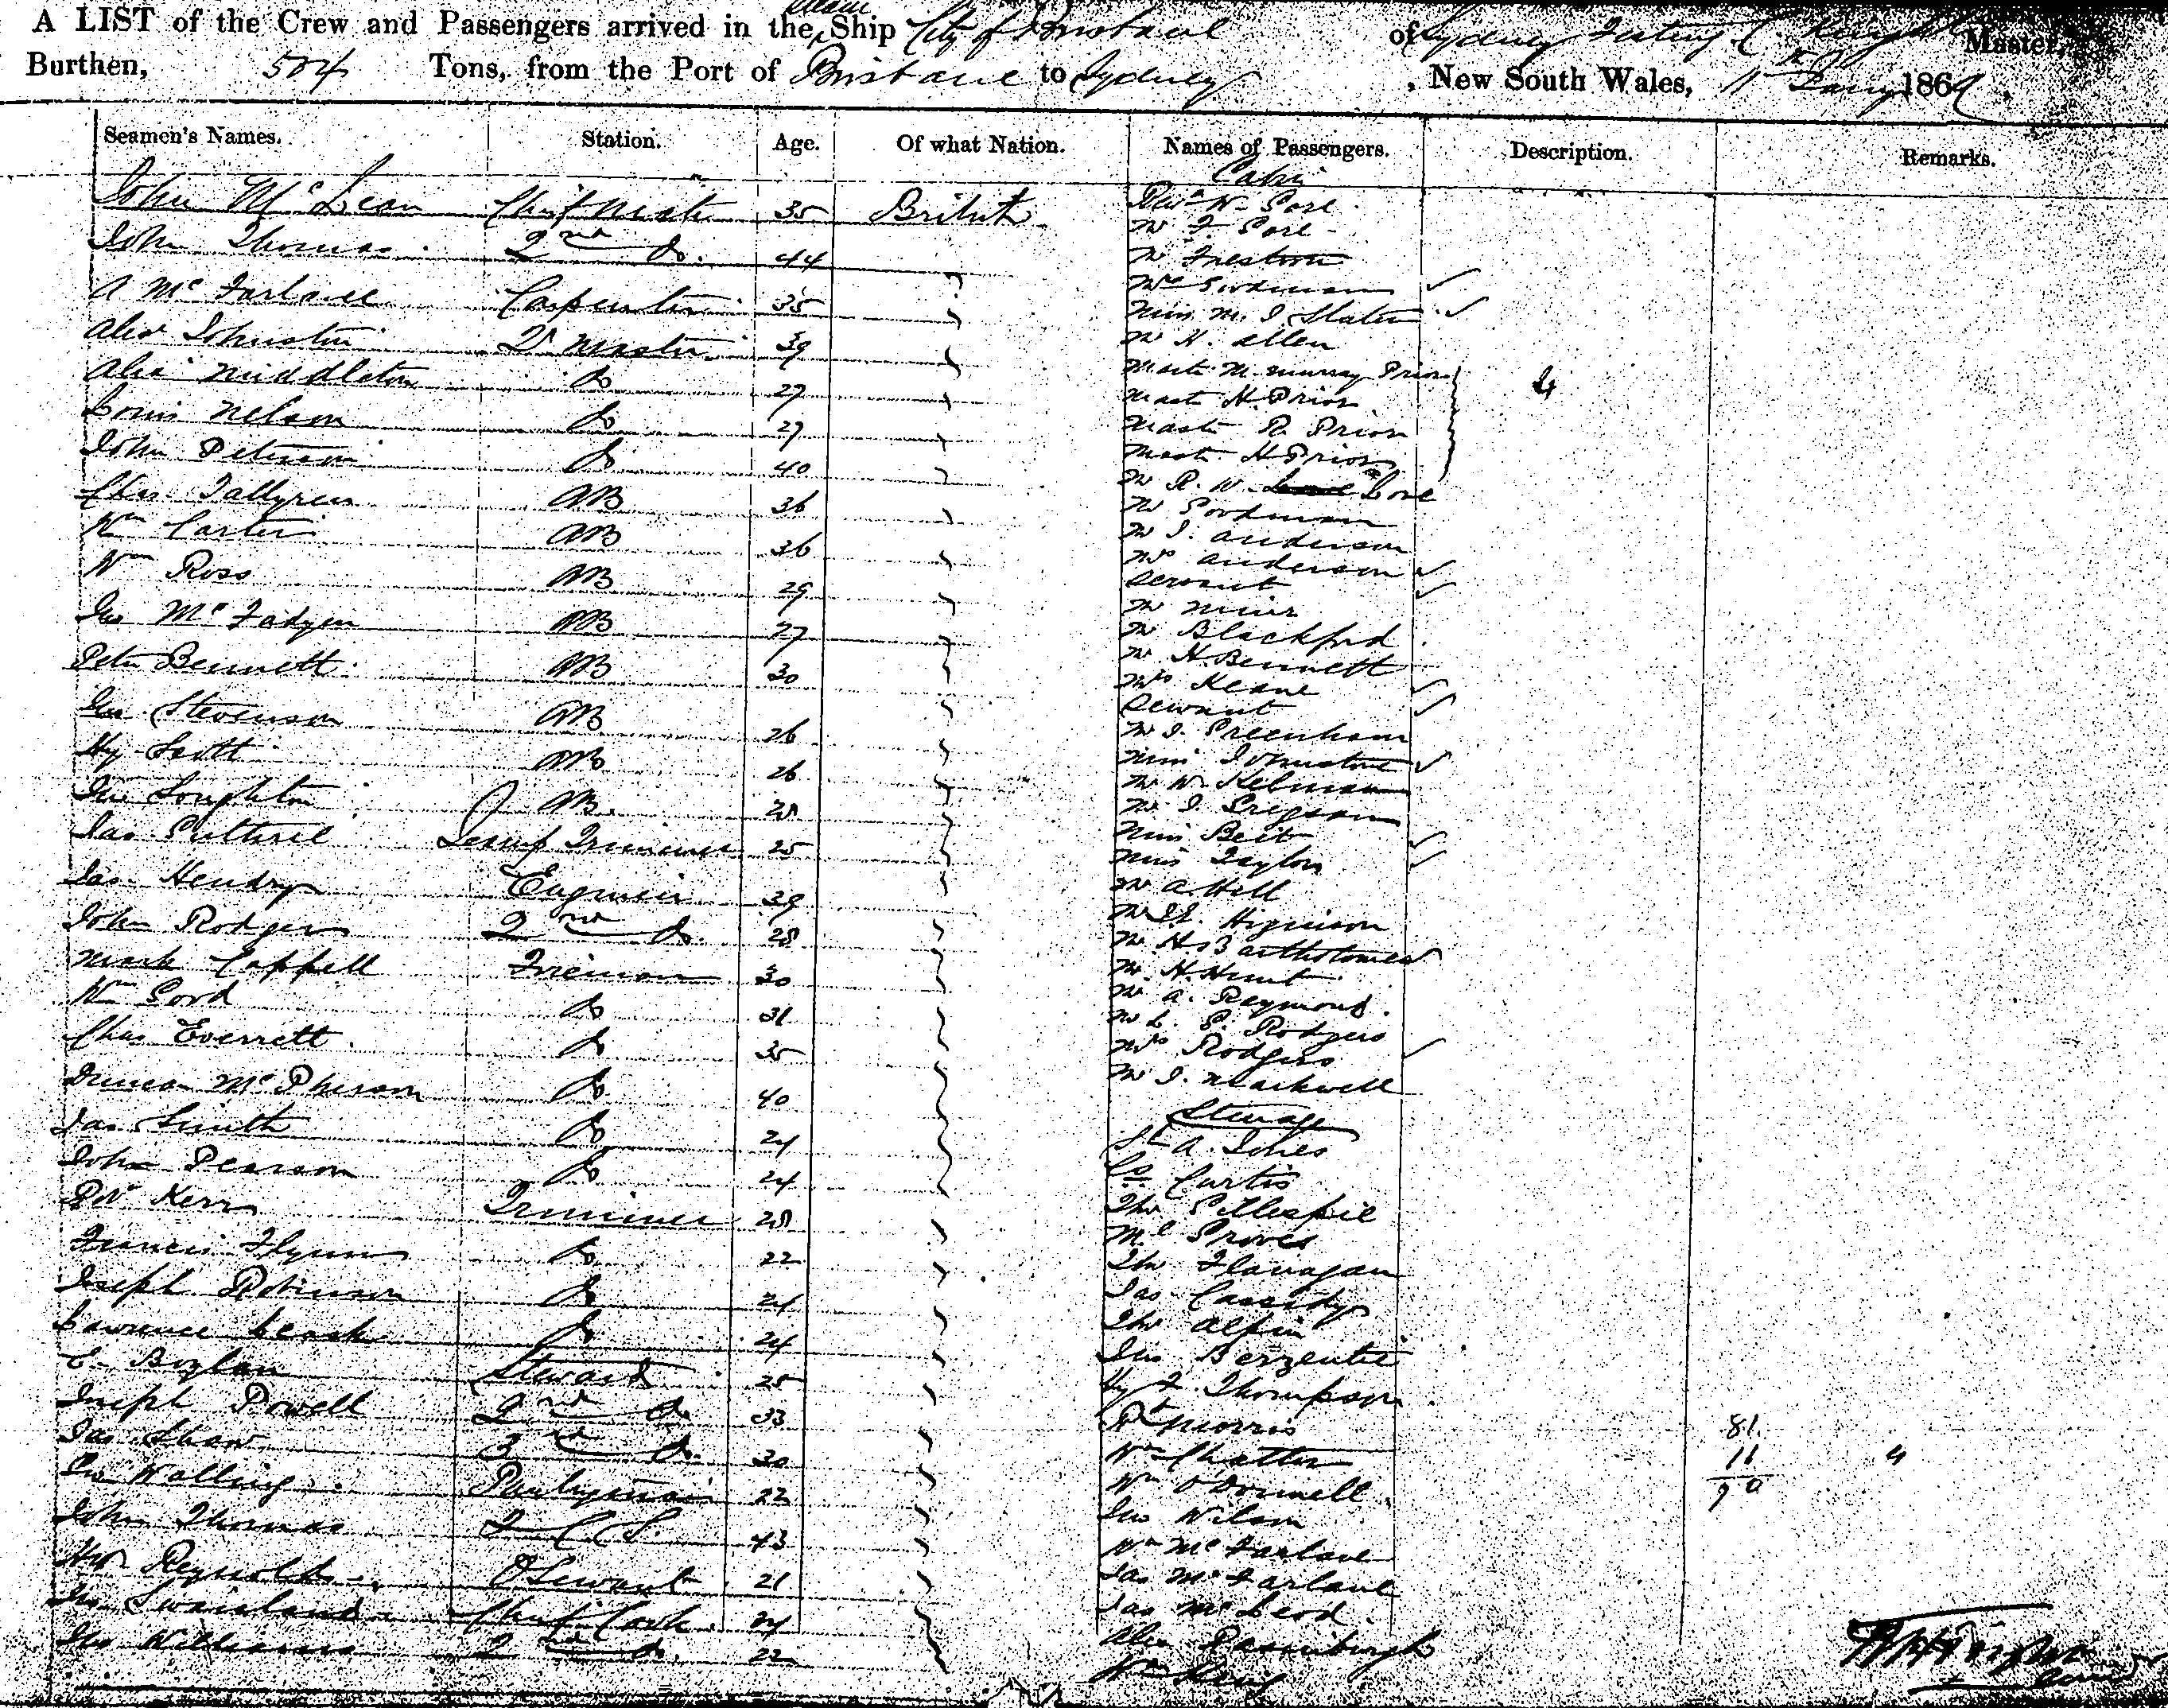 A LIST of the Crew and Passengers arrived in the Steam Ship City of Brisbane of Sydney Master,
Burthen, 504 Tons, from the Port of Brisbane to Sydney, New South Wales, 11th Jany 1869.
Seamen's Names. Station. Age. Of what Nation. Names of Passengers. Description. Remarks.
Cabin
John McLean Chief Mate 35 British W. Gore
John Thomas 2nd Do. 44 Mr F. Gore
Mr
A McFarlane Carpenter 35 Mrs Goodman
Miss M. J. Slater
Alexr Johnston Qr Master 39 Mr H. Allen
Alexr Middleton Do 27 Mastr M. Murray Prior 4
Mastr H. Prior
Louis Nelson Do 27 Mastr R. Prior
John Peterson Do 40 Mastr H Prior
Mr R. W.
Chas Tallgren AB 36 Mr Goodman
Wm Carter AB 36 Mr J. Anderson
Mrs Anderson
Wm Ross AB 29 Servant
Mr
Jno McFadyen AB 27 Mr Blackford
Peter Bennett AB 30 Mr H. Bennett
Mrs Keane
Jno Stevenson AB 26 Servant
Mr J. Greenham
Hy Scott AB 26 Miss Johnstone
Mr W. Kelman
Loughton AB. 28 Mr J. Gregson
Jas Guthrie Trimmer 25 Miss Beit
Miss Taylor
Jas. Hendry Engineer 39 Mr A. Hill
John Rodgers 2nd Do. 28 Mr Higinson
Mr H Bartholomew
Mark Cappell Fireman 30 Mr H. Hunt
Wm Gord Do 31 Mr A. Raymond.
Mr L. G. Rodgers
Chas Everrett Do 35 Mrs Rodgers
Mr J. Markwell
Duncan McPherson Do 40
Steerage
Jas Smith Do 24 A. Jones
John Pearson Do 24 Curtis
Robt Kerr Trimmer 28 Thos Gillespie
Ml Groves
Francis Flynn Do 22 Thos Flanagan
Joseph Robinson Do 24 Jas Cassidy
Lawrence Leask Do 24 Thos Alpin
E. Boylan Steward 25 Jno Berzentie
Hy F. Thompson
Joseph Powell 2nd Do 33 Rt Morris 81.
Jas Shaw 3rd Do. 30 Wm Chatter 11 4
Geo Walling Pantryman 22 Wm O'Donnell 70
Jno Wilson
John Thomas 2 C S 43 Wm McFarlane
Hy Reynolds Servant 21 Jas McFarlane
Jno Swainland Chief Cook 24 Jas McLeod
Jno Williams 2nd Do. 22 Alex
Wm King